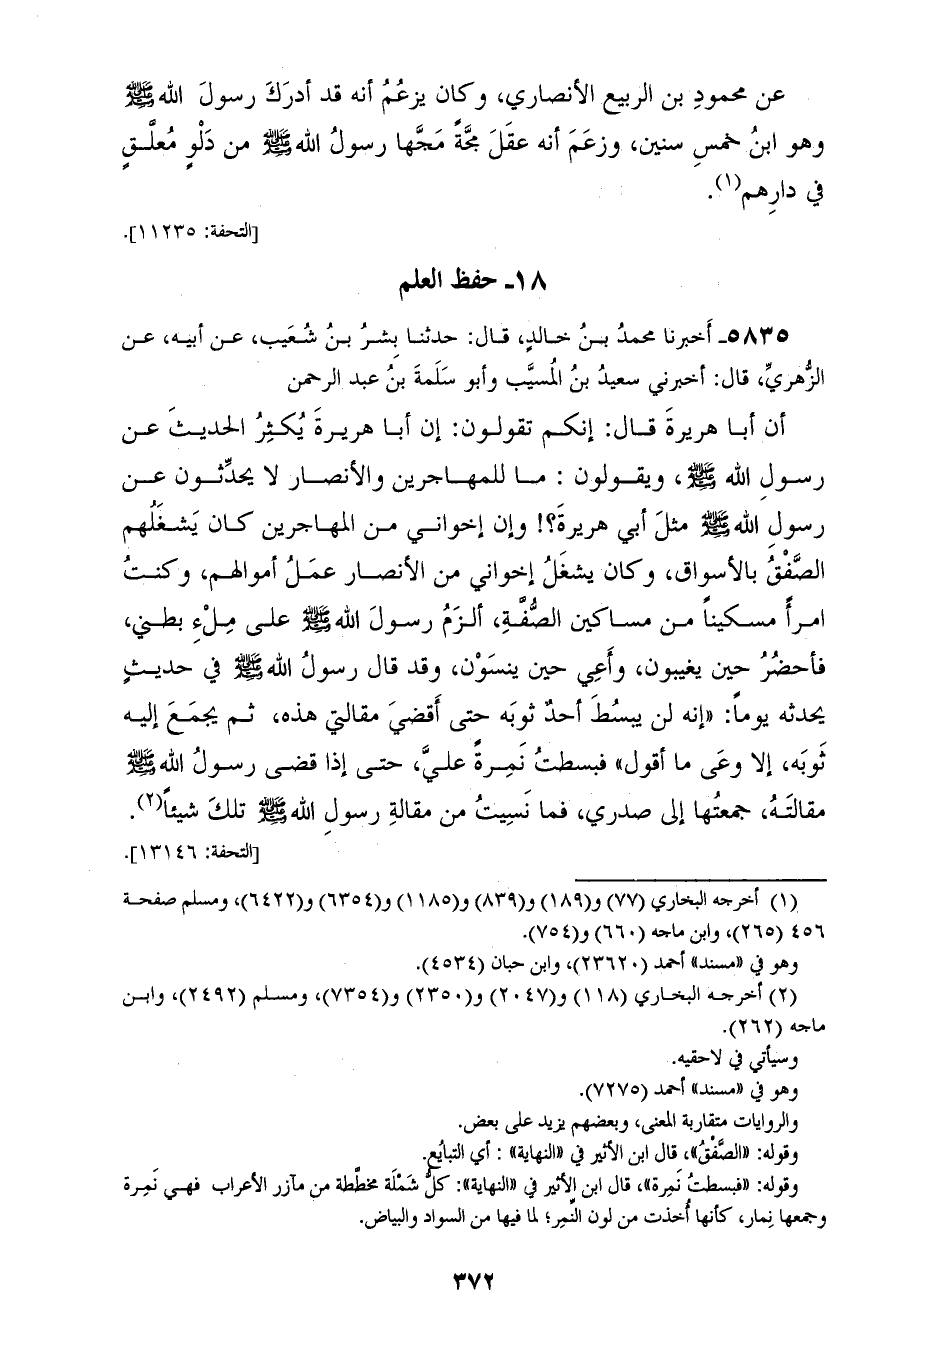 عن محمودِ بن الربيع الأنصاري، وكان يزعُمُ أنه قد أدرَكَ رسولَ الله ﷺ
وهو ابنُ خمسِ سنين، وزعَمَ أنه عقَلَ مجَّةً مَجَّها رسولُ الله ﷺ من دَلْوٍ مُعلَّقٍ
في دارِهم(١).
[التحفة: ١١٢٣٥].
١٨ـ حفظ العلم
٥٨٣٥ـ أَخبرنا محمدُ بنُ خالدٍ، قال: حدثنا بِشرُ بنُ شُعَيب، عن أبيه، عن
الزُّهريِّ، قال: أخبرني سعيدُ بنُ المُسيَّب وأبو سَلَمةَ بنُ عبد الرحمن
أن أبا هريرةَ قال: إنكم تقولون: إن أبا هريرةَ يُكثِرُ الحديثَ عن
رسولِ الله ﷺ، ويقولون : ما للمهاجرين والأنصار لا يحدِّثون عن
رسولِ الله ﷺ مثلَ أبي هريرةَ؟! وإن إخواني من المهاجرين كان يَشغَلُهم
الصَّفْقُ بالأسواق، وكان يشغَلُ إخواني من الأنصار عمَلُ أموالهم، وكنتُ
امرأً مسكيناً من مساكين الصُّفَّةِ، ألزَمُ رسولَ الله ﷺ على مِلْءِ بطني،
فأحضُرُ حين يغيبون، وأَعِي حين ينسَوْن، وقد قال رسولُ الله ﷺ في حديثٍ
يحدثه يوماً: «إنه لن يبسُطَ أحدٌ ثوبَه حتى أَقضيَ مقالتي هذه، ثم يجمَعَ إليه
ثَوبَه، إلا وعَى ما أقول» فبسطتُ نَمِرةً عليَّ، حتى إذا قضى رسولُ الله ﷺ
مقالتَهُ، جمعتُها إلى صدري، فما نَسِيتُ من مقالةِ رسولِ الله ﷺ تلكَ شيئاً(٢).
[التحفة: ١٣١٤٦].
(١) أخرجه البخاري (٧٧) و(١٨٩) و(٨٣٩) و(١١٨٥) و(٦٣٥٤) و(٦٤٢٢)، ومسلم صفحة
٤٥٦ (٢٦٥)، وابن ماجه (٦٦٠) و(٧٥٤).
وهو في «مسند» أحمد (٢٣٦٢٠)، وابن حبان (٤٥٣٤).
(٢) أخرجه البخاري (١١٨) و(٢٠٤٧) و(٢٣٥٠) و(٧٣٥٤)، ومسلم (٢٤٩٢)، وابن
ماجه (٢٦٢).
وسيأتي في لاحقيه.
وهو في «مسند» أحمد (٧٢٧٥).
والروايات متقاربة المعنى، وبعضهم يزيد على بعض.
وقوله: «الصَّفْقُ»، قال ابن الأثير في «النهاية» : أي التبايُع.
وقوله: «فبسطتُ نَمِرة»، قال ابن الأثير في «النهاية»: كلُّ شَمْلَة مخطَّطة من مآزر الأعراب فهي نَمِرة
وجمعها نِمار، كأنها أُخذت من لون النَّمِر؛ لما فيها من السواد والبياض.
٣٧٢